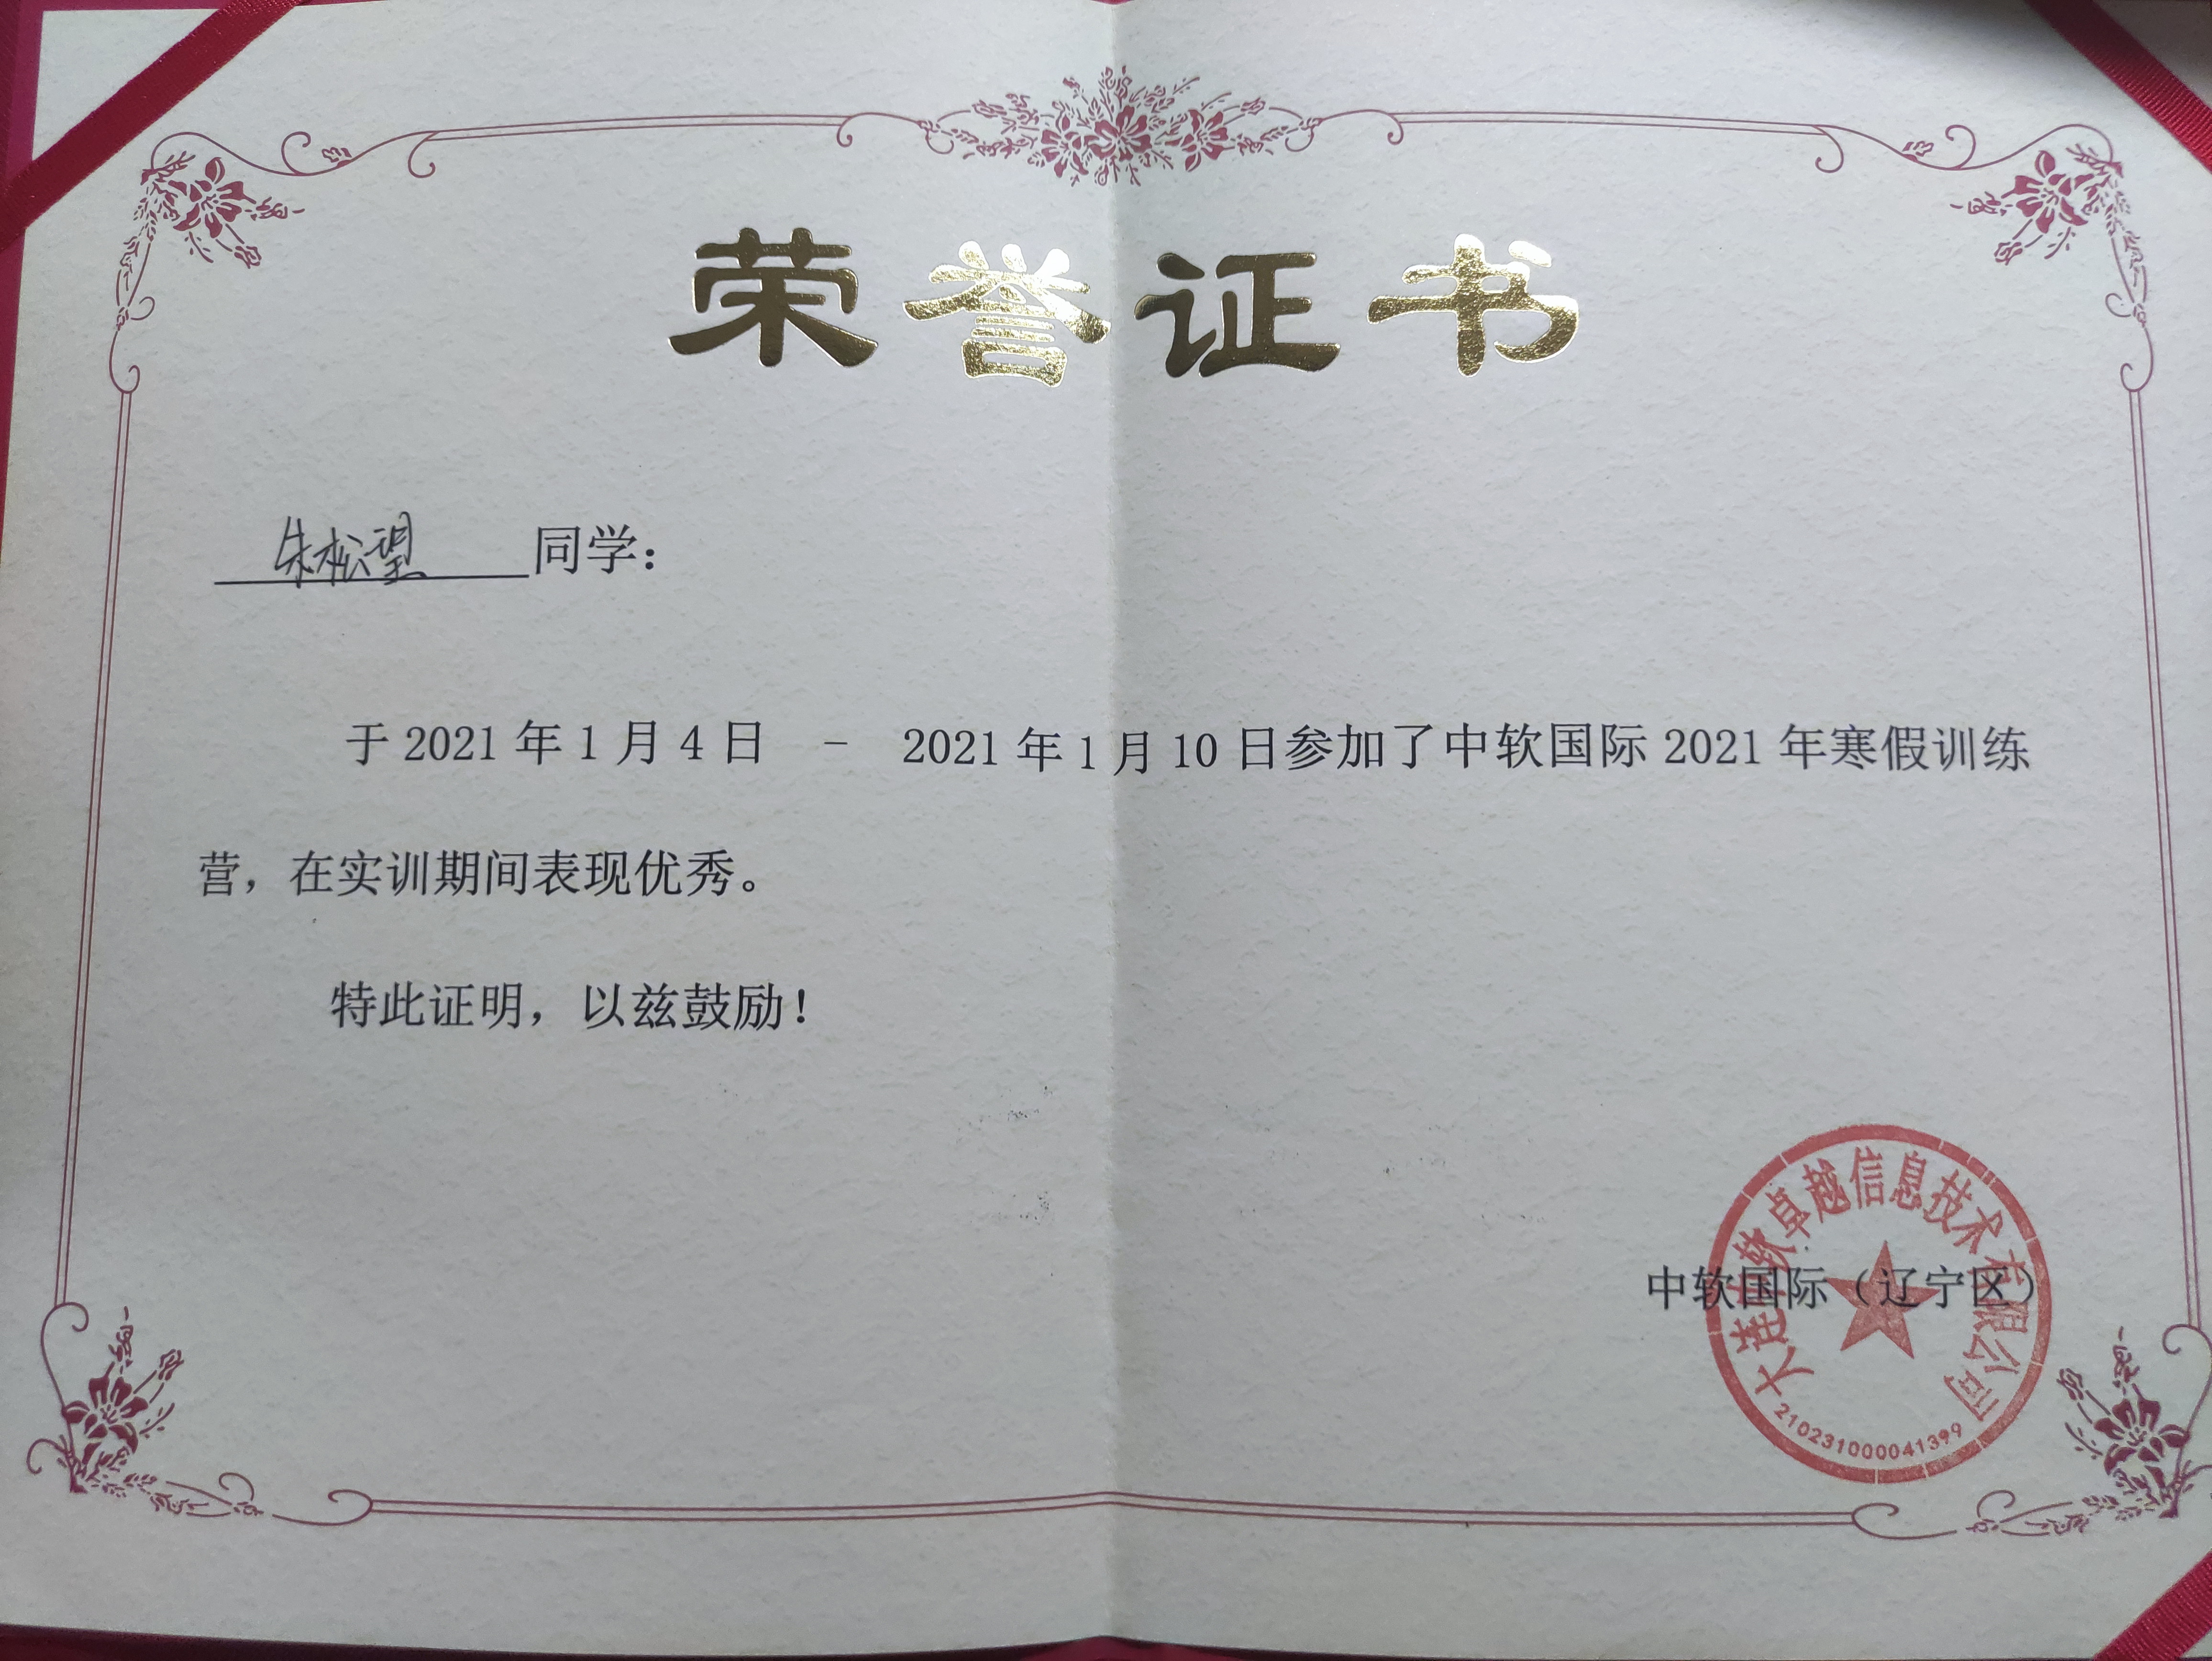 荣誉证书
朱松望 同学：
于 2021 年 1 月 4 日 － 2021 年 1 月 10 日参加了中软国际 2021 年寒假训练
营，在实训期间表现优秀。
特此证明，以兹鼓励！
大连中软卓越信息技术有限公司
中软国际（辽宁区）
210231000041399